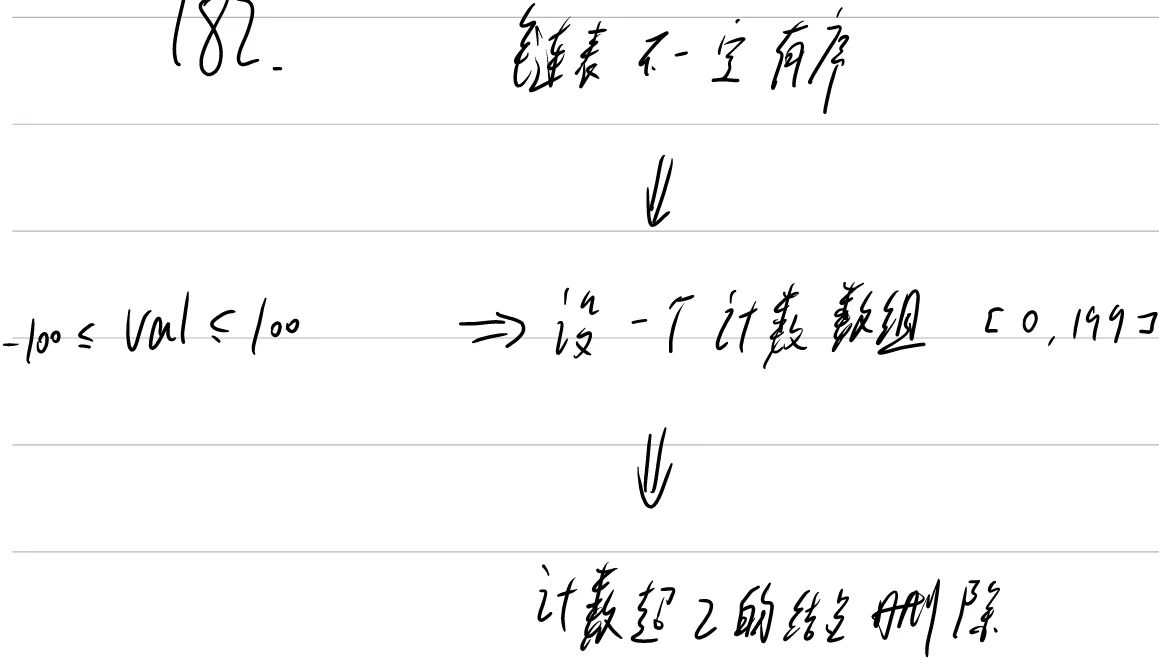 182.
链表不一定有序
⇓
-100 ≤ val ≤ 100 ⇒ 设一个计数数组 [0,199]
⇓
计数超2的结点删除